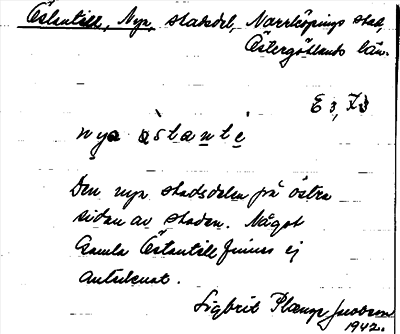 Östantill, Nya, stadsdel, Norrköpings stad,
Östergötlands län.
E 3,
nya östante
Den nya stadsdelen på östra
sidan av staden. Något
Gamla Östantill finnes ej
antecknat.
Sigbrit Plænge Jacobson
1942.